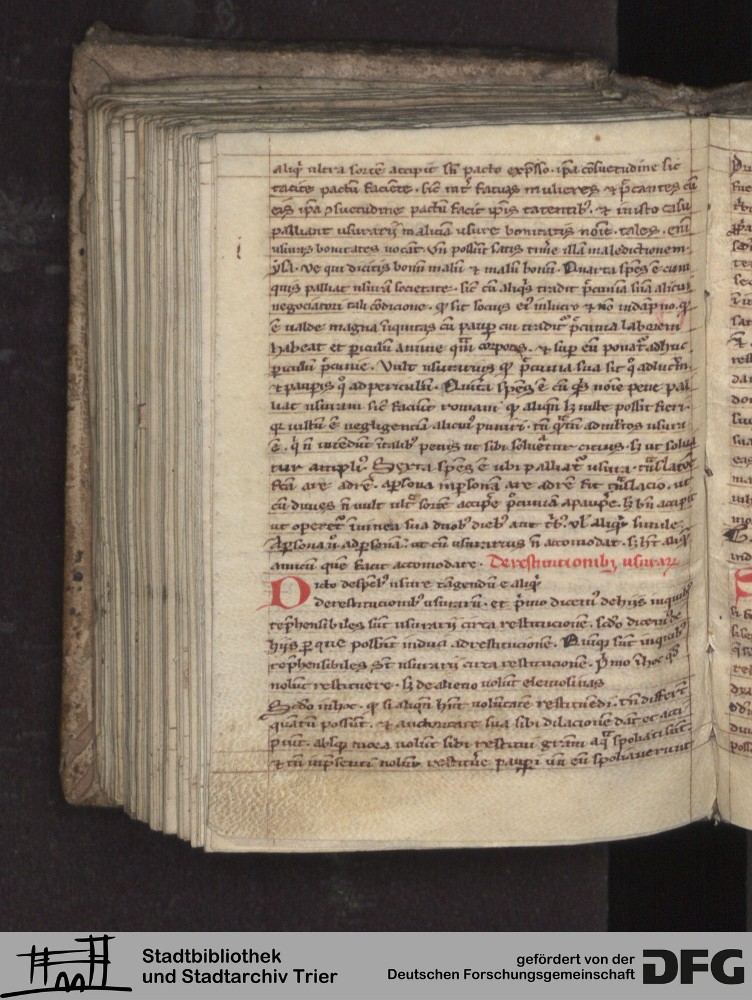 aliqͥd ultra sortē accipit sñ pacto exp̄sso. ip̄a cōsuetudine sic
tacite pactū faciēte. sic̄ int̄ fatuas mulieres & p̄cantes cū
eis ip̄a ɔsuetudine pactū facit ip̄is tacentib;. & in isto casu
palliant usurarij maliciā usure bonitatis noīe. tales. eni
usuras bonitates uocāt. Vn̄ possūt satis tim̄e illā maledictionem.
ysa. Ve qui dicitis bonū malū & malū bonū. Quarta sp̄es ē cum
quis palliat usurā societate. sic̄ cū aliqͥs tradit pecunia suā alicui
negociatori tali ɔdicione. qͦ sit socius eiꝰ in lucro & nō in dāpno. qͦ
ē ualde magna iniquitas cū paup̄ cui traditᷣ pecunia laborem
habeat et periculū anime quā corporis. & sup̄ eū ponatᷣ adhuc
periculū pecunie. Vult usurarius qͦ pecunia sua sit qͦ ad lucrū.
& paupis qͦ ad periculū. Quīta sp̄es ē cū qͥs noīe pene pal
liat usuram sic̄ faciūt romani. qͦ aliqn̄ licet iuste possit fieri.
qr iustū ē negligencia alicuiꝰ puniri. tn̄ qͣtū ad m̄tos usura
ē. qͥ nō intēdūt ī talibꝰ penis ut sibi soluētur citius. sꝫ ut solua
tur ampliꝰ. Sexta sp̄es ē ubi palliatᷣ usura. trāslatōe
facta a re ad rē. a persona in personā. a re ad rē fit trāslacio. ut
cū diues nō uult ultᷓ sortē accipe pecuniā a paup̄e. sꝫ bn̄ accipit
ut operetᷣ in uinea sua duobꝰ diebꝰ aut tribꝰ. ul aliqͥd simile.
A persona u̅ ad personā. ut cū usurarius nō accomodat. sꝫ hꝫt aliqͣ
amicū que facit accomodare. De restitutionibꝫ usurarū
Dicto de spēbꝰ usure tāgendū ē aliqͥd
de restitucionibꝰ usurarū. et p̄mo dicemꝰ de hijs in quibꝰ
rep̄hensibiles sūt usurarij circa restitucionē. scdo dicemꝰ de
hijs per que possūt induci ad restitucionē. Quinqꝫ sūt in quibꝰ
rep̄hensibiles sūt usurarij circa restitucionē. p̄mo ī hoc qͦd
nolūt restituere. sꝫ de alieno uolūt elemosinas
Scdo in hoc. qͦ si aliqn̄ hn̄t uolūtatē restituēdi. tn̄ differūt
quātū possūt. & auctoritate sua sibi dilacionē dāt. et acci
piūt. absqꝫ mora uolūt sibi restitui grām a qͣ spoliati sūt.
& tn̄ in p̄senti nolūt restitue paup̄i un̄ eū spoliauerunt
Stadtbibliothek
und Stadtarchiv Trier
gefördert von der
Deutschen Forschungsgemeinschaft
DFG